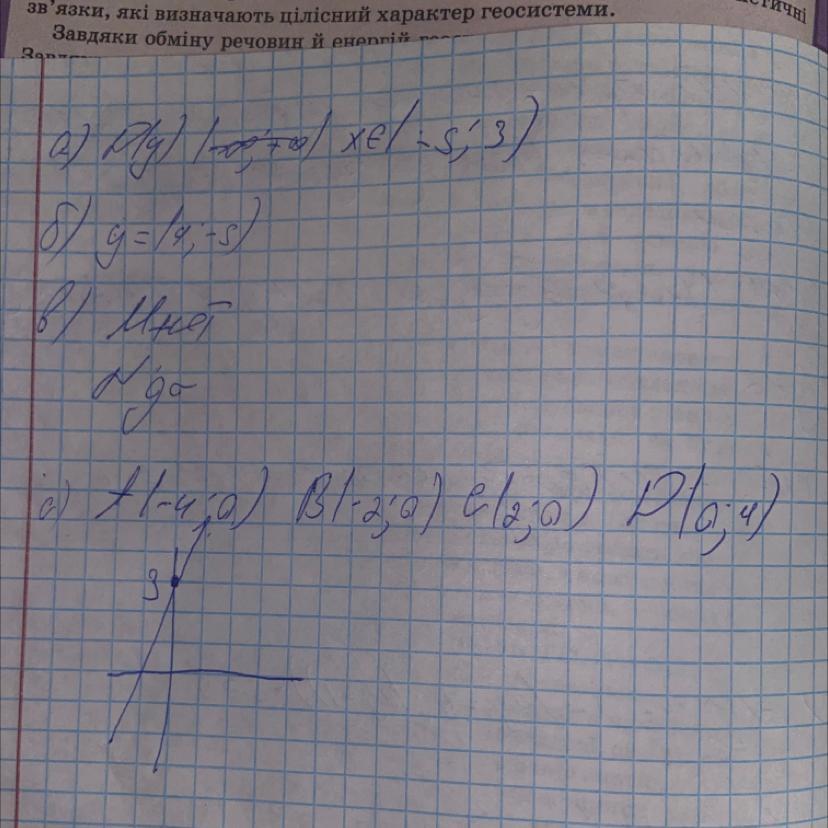 зв'язки, які визначають цілісний характер геосистеми.
Завдяки обміну речовин й енергій
а) D(y) (-∞; +∞) x∈(-5; 3)
б) y=(4; -5)
в) M нет
N да
с) A(-4; 0) B(-2; 0) C(2; 0) D(0; 4)
3